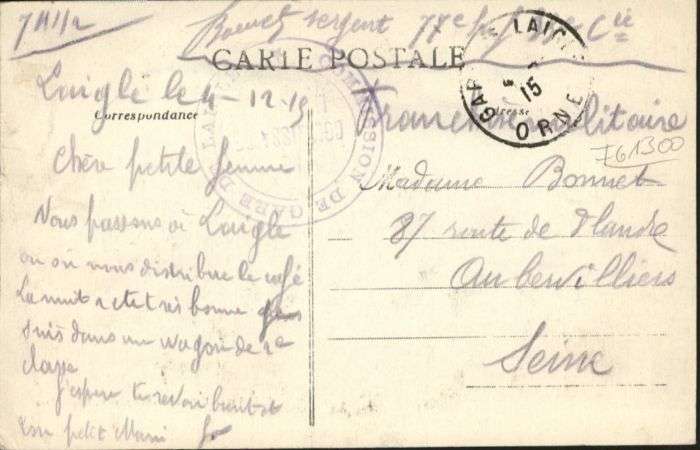 Bonnet sergent 77e Cie
CARTE POSTALE
Laigle le 4-12-15
Correspondance
Franchise militaire
Adresse
LAIGLE
GARE
15
ORNE
COMMISSION DE GARE DE LAIGLE
761300
Chère petite femme
Nous passons à Laigle
ou on nous distribue le café
La nuit a été très bonne
suis dans un wagon de 2e
classe
J'espère te revoir bientot
ton petit Mari
Madame Bonnet
87 route de Flandre
Aubervilliers
Seine